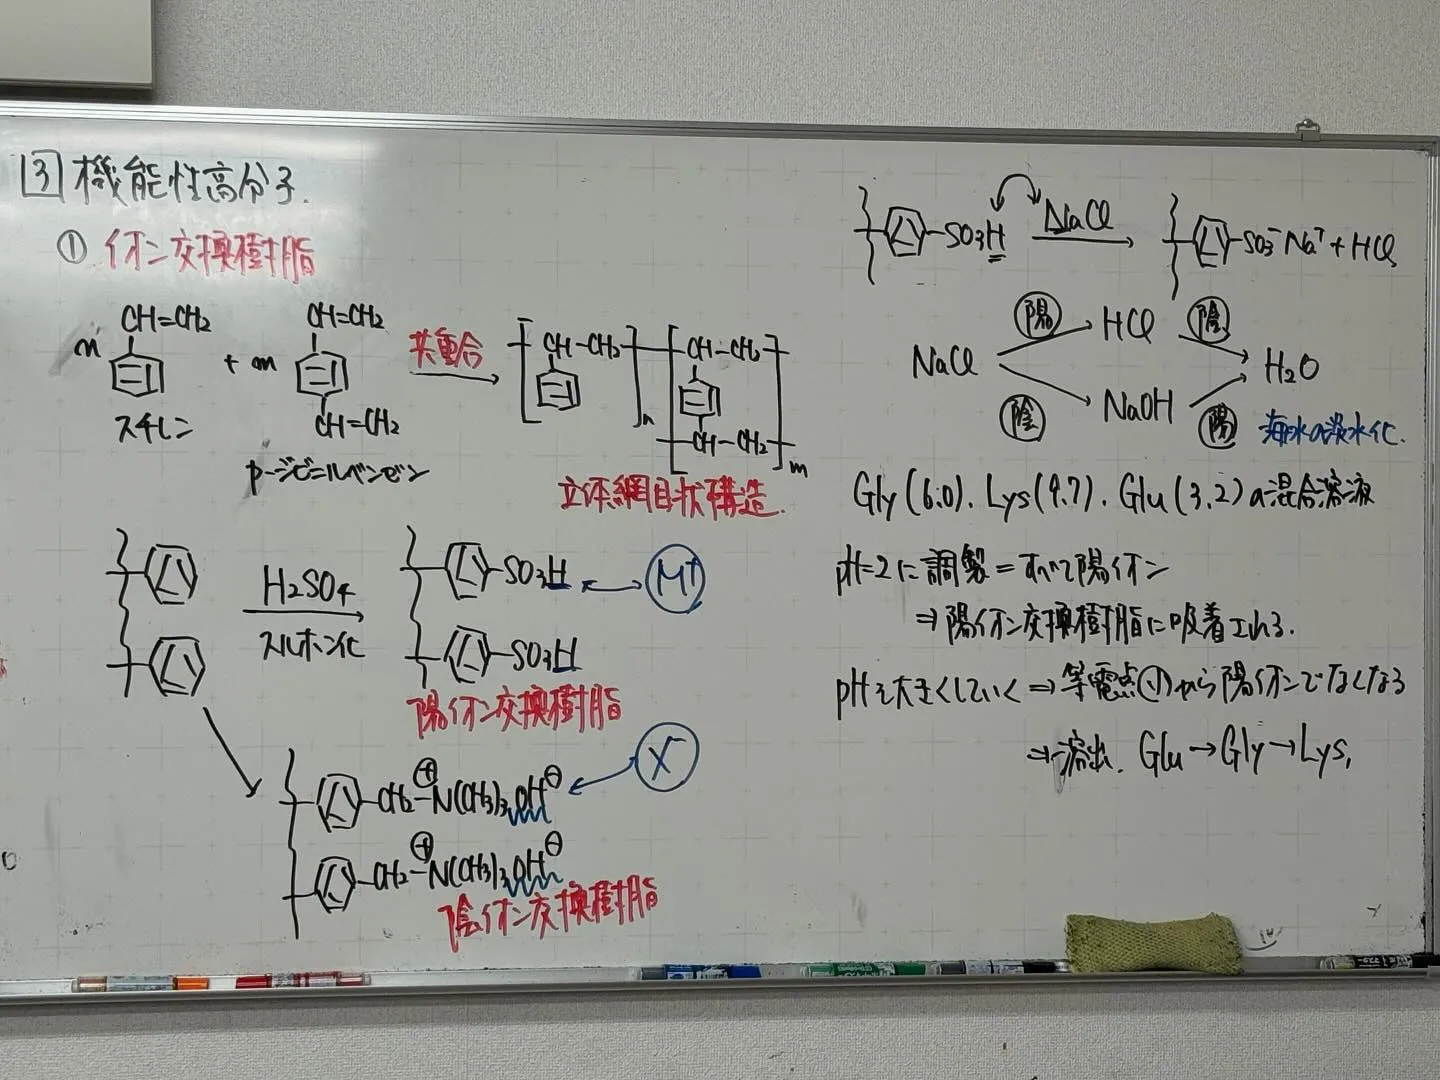 3 機能性高分子.
① イオン交換樹脂
n CH=CH2 + m CH=CH2 CH=CH2
スチレン
p-ジビニルベンゼン
共重合
CH-CH2 n CH-CH2 CH-CH2 m
立体網目状構造.
H2SO4
スルホン化
SO3H M+
SO3H
陽イオン交換樹脂
CH2-N(CH3)3OH ⊕ ⊖ X-
CH2-N(CH3)3OH ⊕ ⊖
陰イオン交換樹脂
SO3H NaCl SO3-Na+ + HCl
NaCl 陽 HCl 陰 H2O
陰 NaOH 陽
海水の淡水化.
Gly(6.0). Lys(9.7). Glu(3.2)の混合溶液
pH=2に調製=すべて陽イオン
⇒陽イオン交換樹脂に吸着される.
pHを大きくしていく⇒等電点㋑から陽イオンでなくなる
⇒溶出. Glu→Gly→Lys,